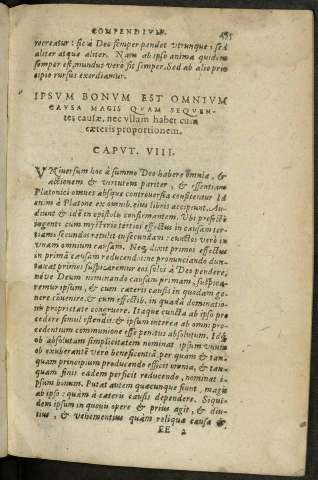 COMPENDIVM.
recreatur: sic à Deo semper pendet vtrunque: sed
aliter atque aliter. Nam ab ipso anima quidem
semper est, mundus verò fit semper. Sed ab alio prin
cipio rursus exordiamur.
IPSVM BONVM EST OMNIVM
CAVSA MAGIS QVAM SEQVEN-
tes causæ, nec vllam habet cum
cæteris proportionem.
CAPVT. VIII.
VNiuersum hoc à summo Deo habere omnia, &
actionem & virtutem pariter, & essentiam
Platonici omnes absque controuersia confitentur Id
enim à Platone ex omnib. eius libris accipiunt. Au-
diunt & idē in epistolis confirmantem. Vbi profecto
ingenti cum mysterio tertios effectus in causam ter-
tiam: secundos retulit in secundam: cunctos verò in
vnam omnium causam. Neq; dixit primos effectus
in primā causam reducendos: ne pronunciando dun-
taxat primos suspicaremur eos soli à Deo pendere,
néve Deum nominando causam primam, suspica-
remur ipsum, & cum cæteris causis in quodam ge-
nere conuenire, & cum effectib. in quadā dominatio-
nis proprietate congruere. Itaque cuncta ab ipso pro
cedere simul ostendit: & ipsum interea ab omni pro-
cedentium communione esse penitus absolutum. Id
ob absolutam simplicitatem nominat ipsum vnum
ob exuberantē vero beneficentiā, per quam & tan-
quam principium producendo efficit omnia, & tan-
quam finis eadem perficit reducendo, nominat i-
psum bonum. Putat autem quæcunque fiunt, magis
ab ipso: quàm à cæteris causis dependere. Siqui-
dem ipsum in quouis opere & prius agit, & diu-
tius, & vehementius quàm reliquæ causæ
EE 2